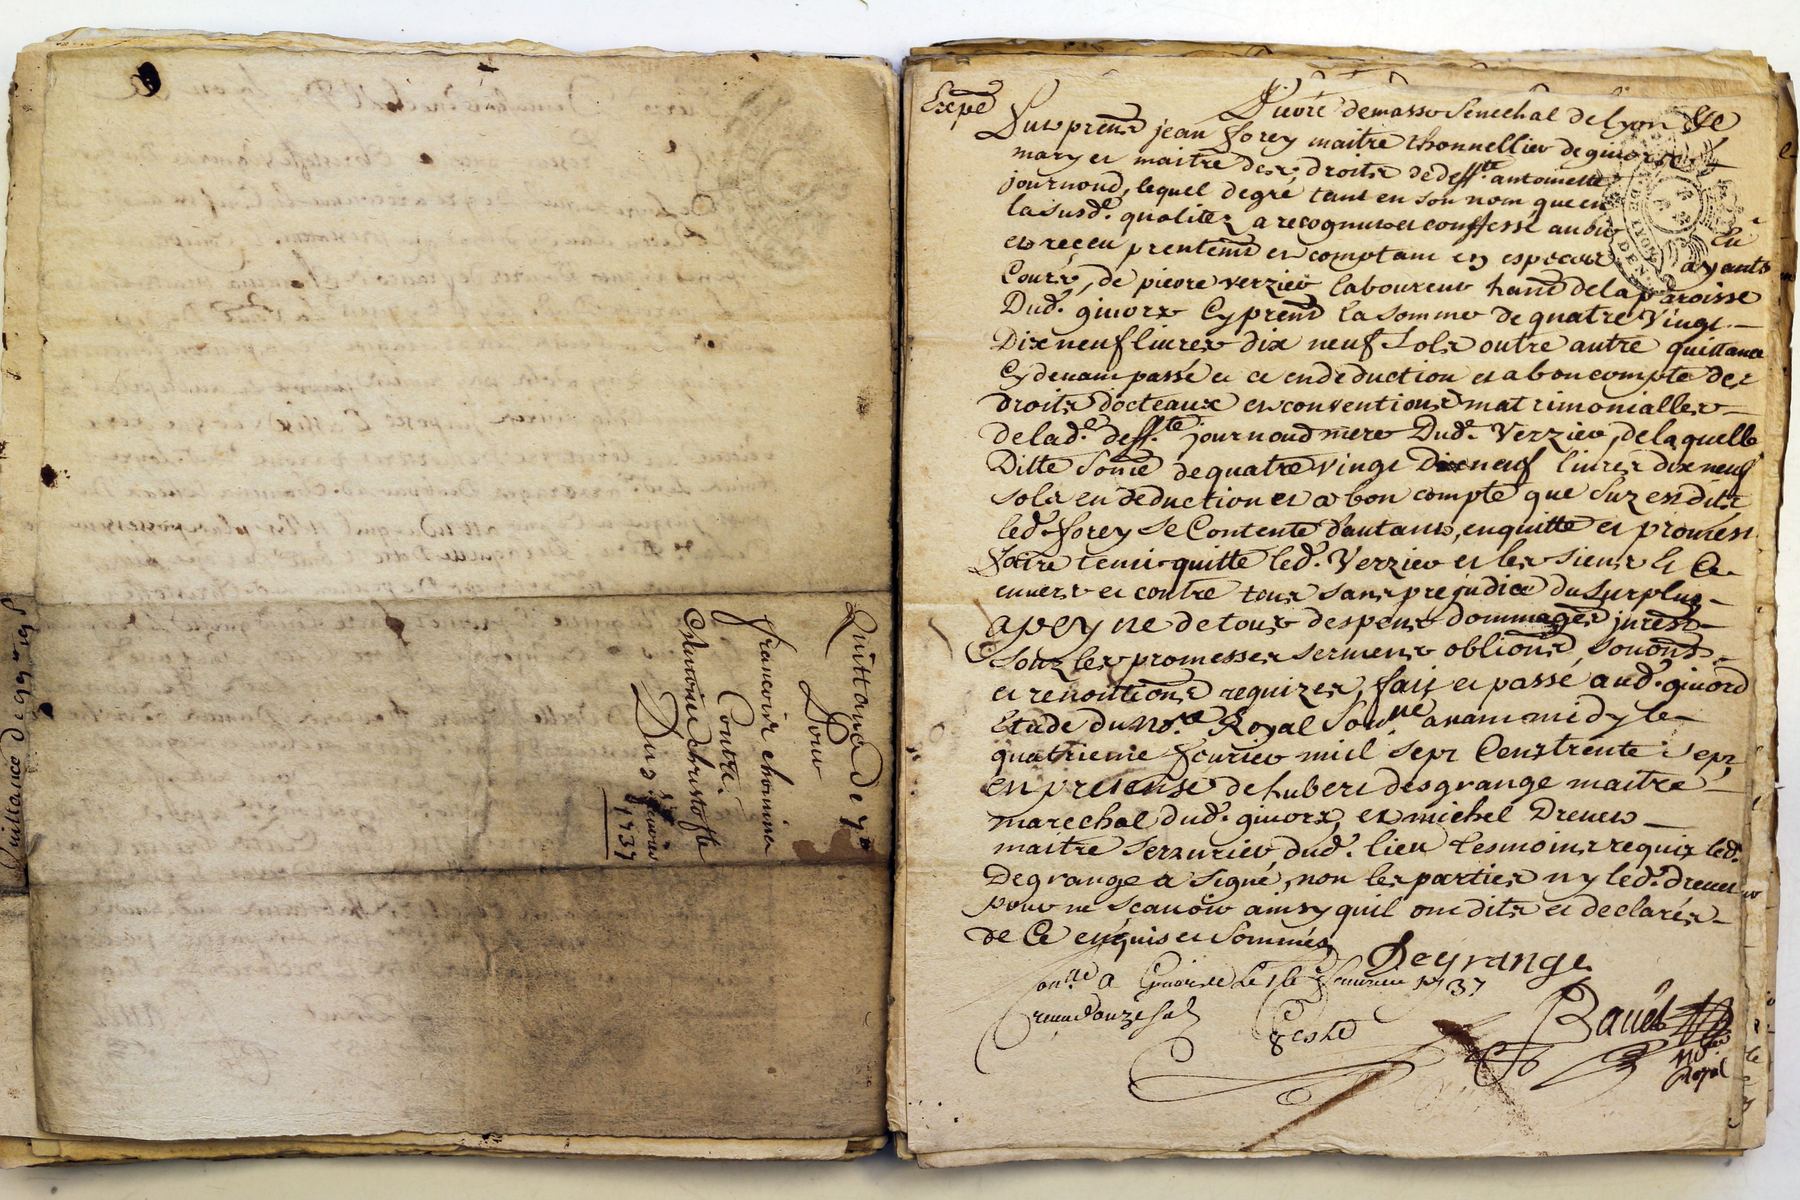 Quittance de 99# 19 s
Quittance de
Pour
francoise chomine
Contre
Antoine christofle
Du 3e feuvrier
1737
Expé
Pierre demasso Senechal de lyon
Furt présent jean forey maitre thonnellier de givors
mary et maitre des droits de deffte antoinette
journoud, lequel de gré tant en son nom que en
la susde qualitez a recognu et confessé avoir eu
et reçeu presentemt et comptant en especes ayants
Cours, de pierre verzier laboureur hant de la paroisse
Dud. givors Cy present la somme de quatre vingt
Dix neuf livres dix neuf Sols outre autre quittance
Cy devant passé et ce en deduction et a bon compte des
droits docteaux et conventions matrimonialles
de lad.e deffte journoud mere Dud. Verzier, de laquelle
Ditte Some de quatre vingt Dix neuf livres dix neuf
sols en deduction et a bon compte que Suz est dite
led. forey Se Contente d'autant, en quitte et promest
faire tenir quitte led. Verzier et les siens
envers et contre tous sans prejudice du Surplus
a peyne de tous despens dommages jnrest
Souz les promesses sermens oblions, soumons
et renontions requizes, fait et passé aud. givord
Etude du nore Royal Sousne avant midy le
quatrieme feuvrier mil sept Cens trente sept
en presense de hubert desgrange maitre
marechal dud. givors, et michel Drevet
maitre Serzurier, dud. lieu tesmoins requis led.
Degrange a signé, non les parties ny led. drevet
pour ne scavoir ainsy quil ont dits et declarés
de Ce enquis et Sommés
Degrange
onlle a Givors le 16e feuvrier 1737
reçeu douze sols
Geste
Bauët
nore
Royal